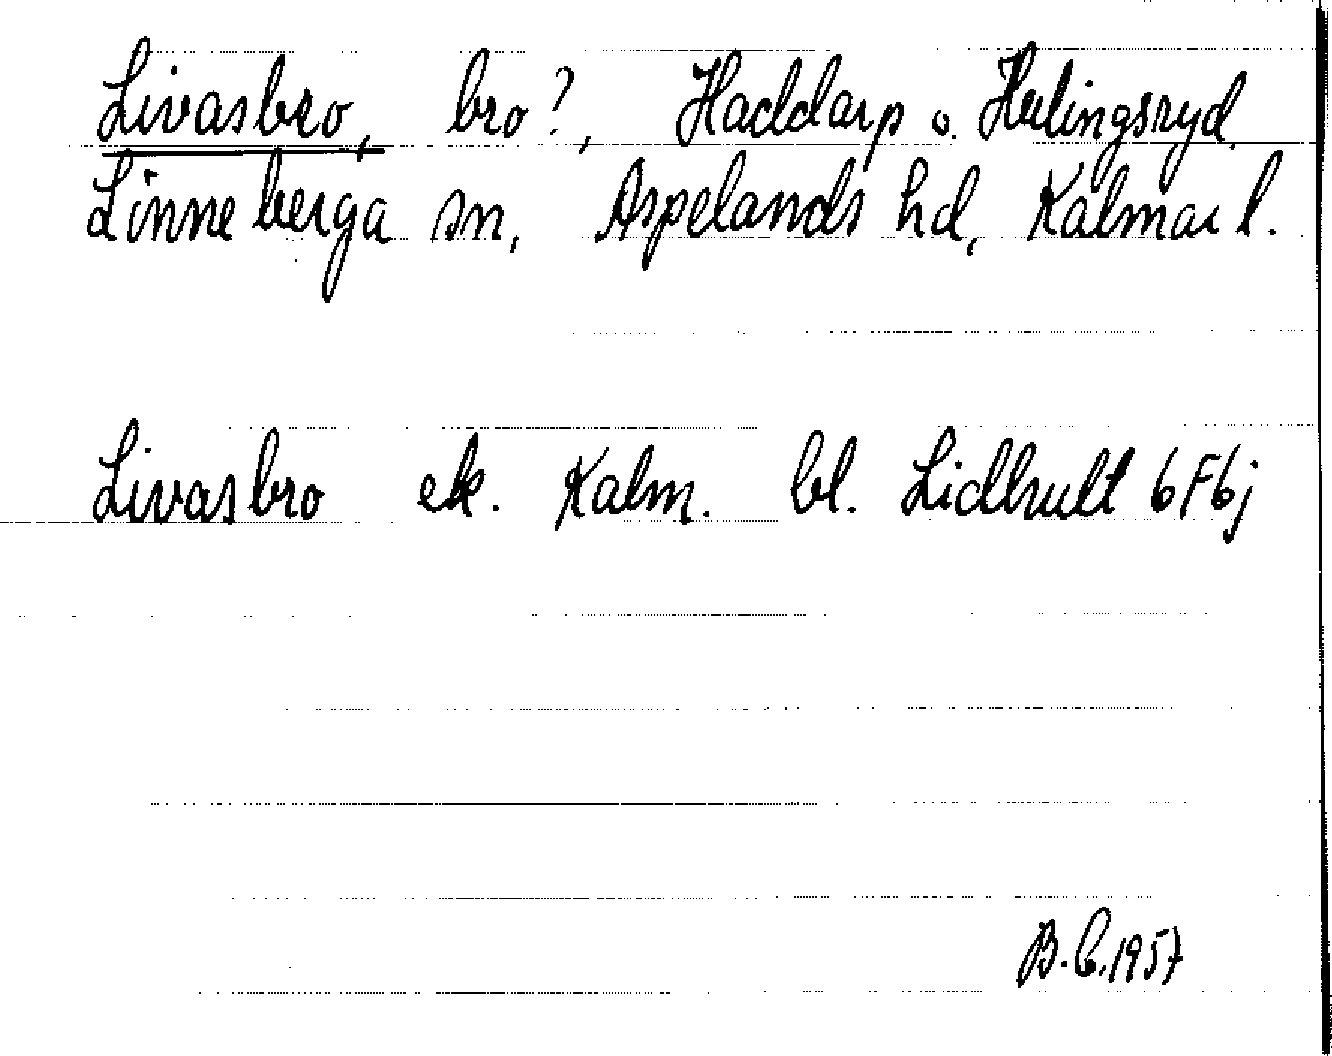 Livasbro, bro?, Haddarp o. Hulingsryd,
Linneberga sn, Aspelands hd, Kalmar l.
Livasbro ek. Kalm. bl. Lidhult 6F6j
B.C. 1957